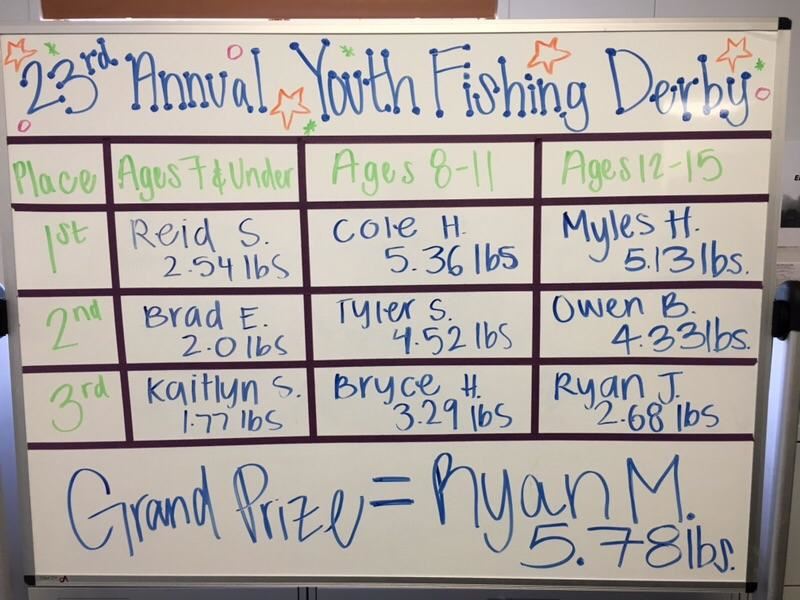 23rd Annual Youth Fishing Derby
Place Ages 7 & Under Ages 8-11 Ages 12-15
1st Reid S. Cole H. Myles H.
2.54 lbs 5.36 lbs 5.13 lbs.
2nd Brad E. Tyler S. Owen B.
2.0 lbs 4.52 lbs 4.33 lbs.
3rd Kaitlyn S. Bryce H. Ryan J.
1.77 lbs 3.29 lbs 2.68 lbs
Grand Prize = Ryan M.
5.78 lbs.